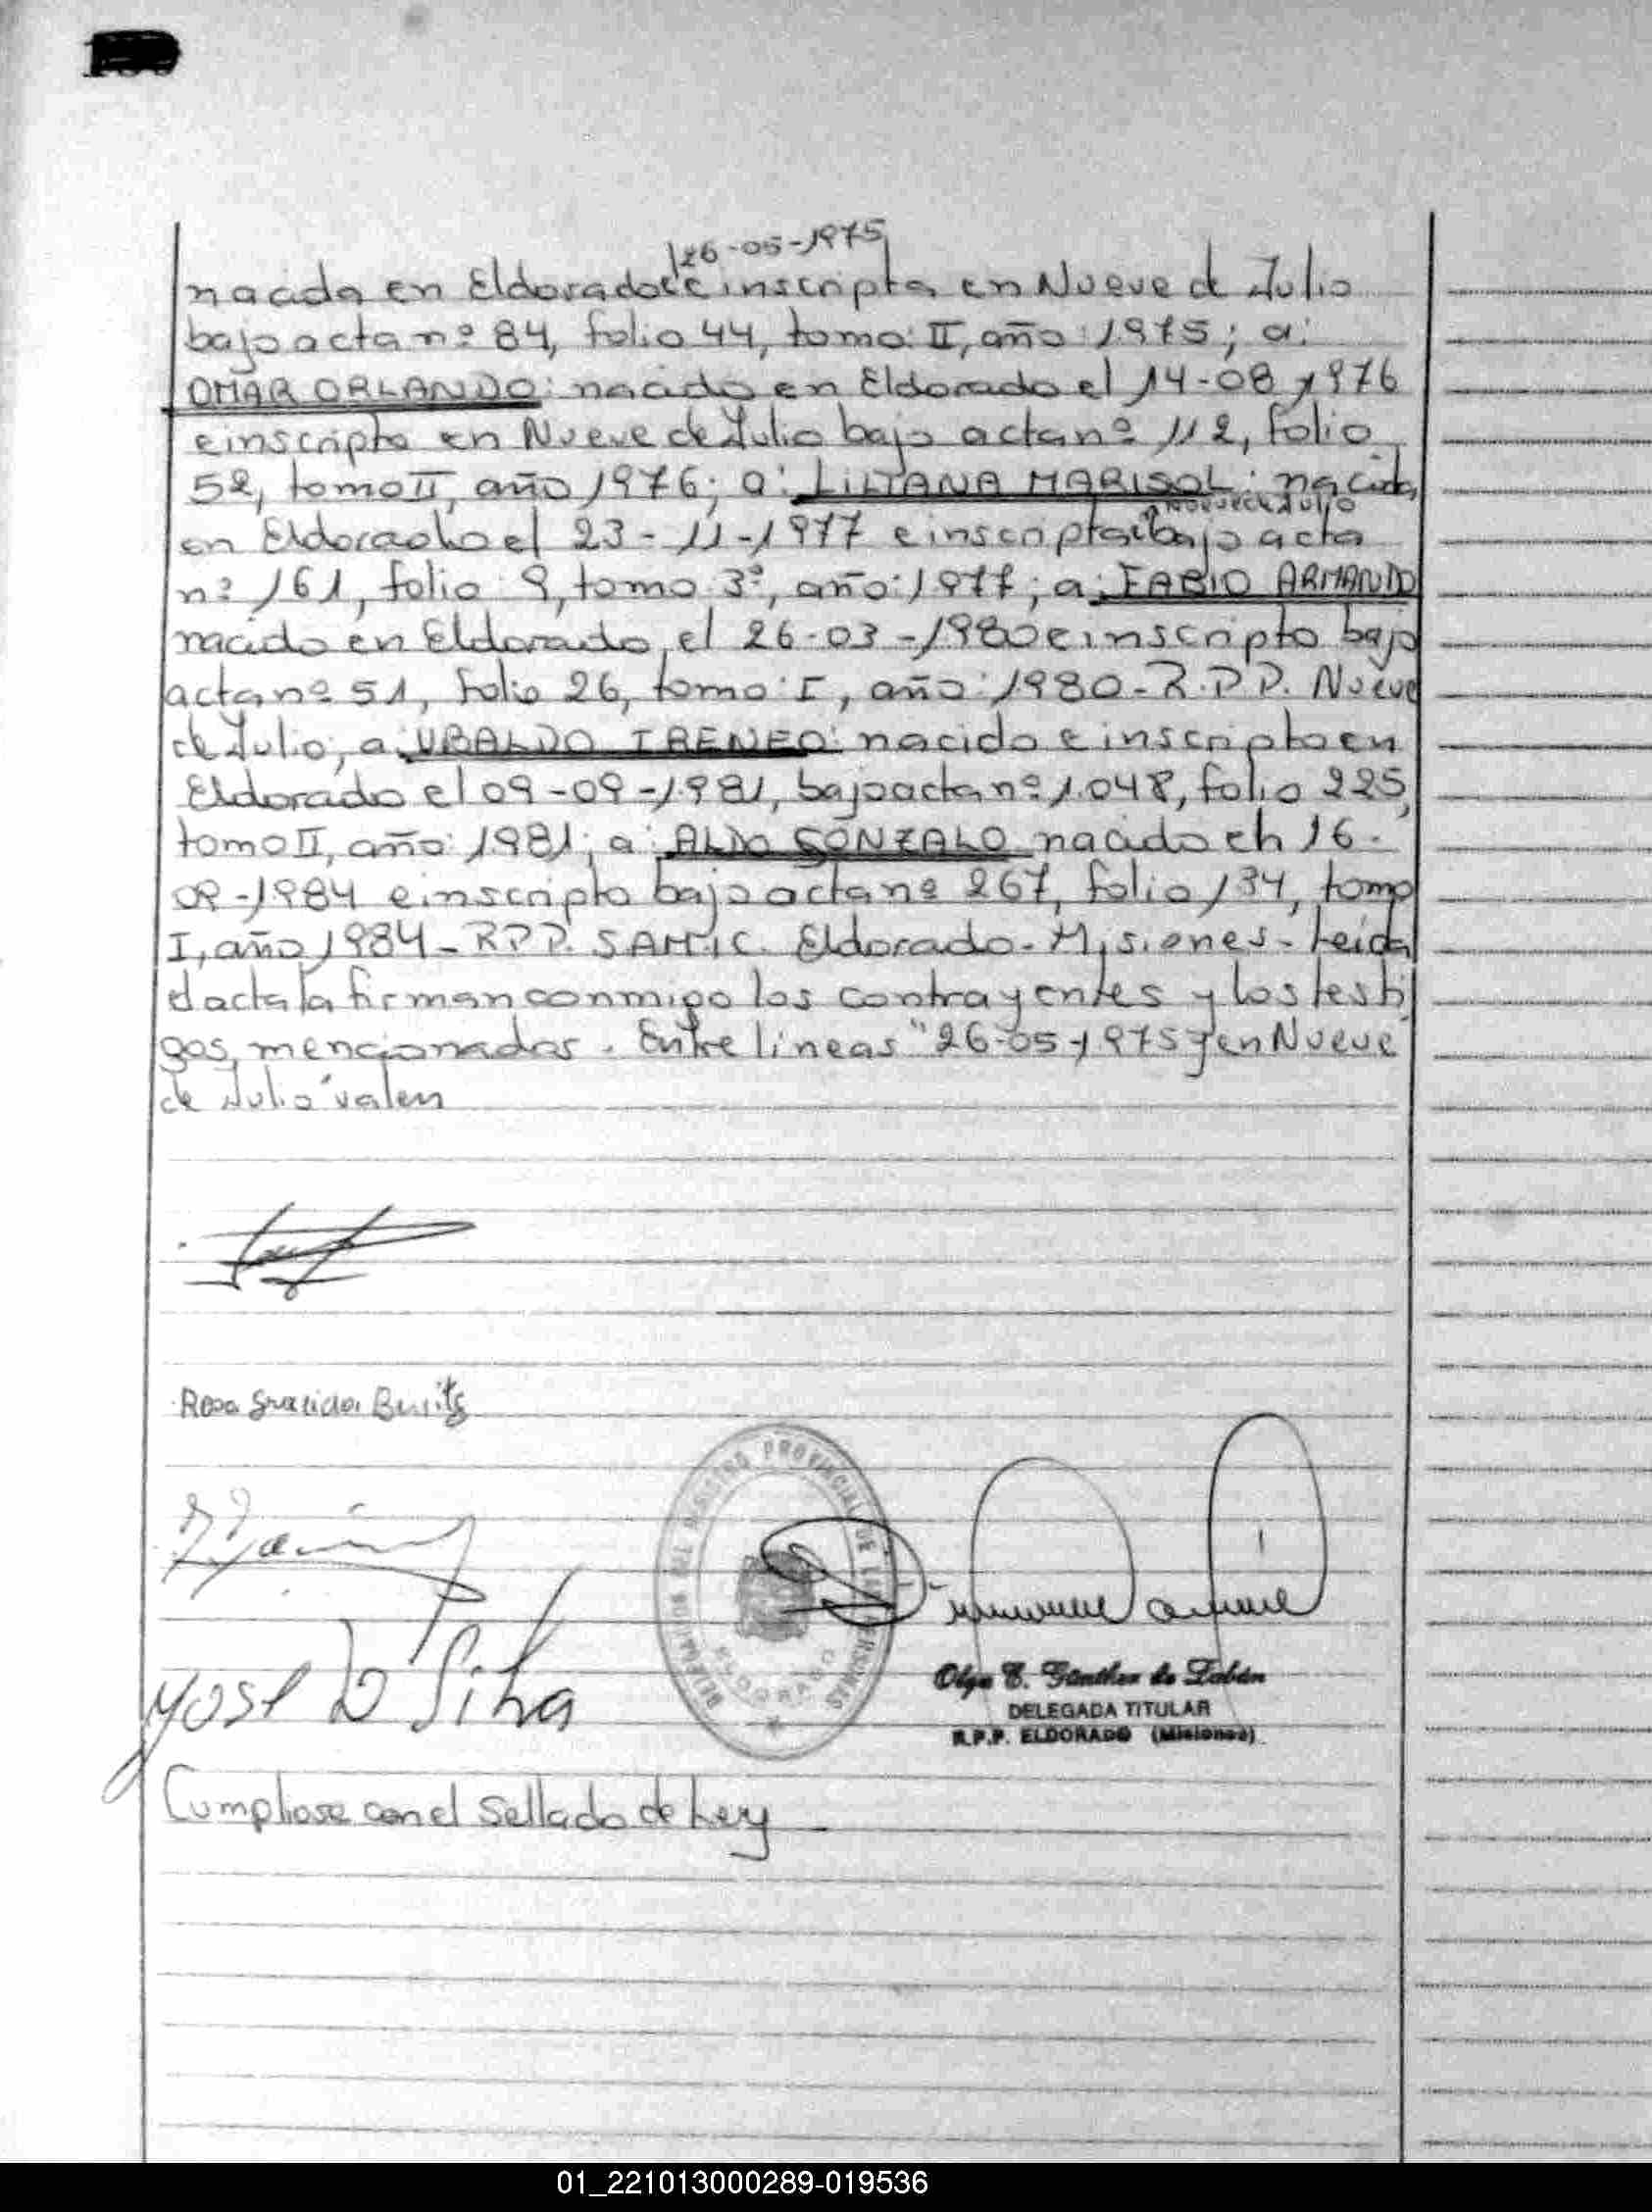 26-05-1975
nacida en Eldorado el e inscripta en Nueve de Julio
bajo acta nº 84, folio 44, tomo: II, año: 1975; a:
OMAR ORLANDO: nacido en Eldorado el 14-08-1976
e inscripto en Nueve de Julio bajo acta nº 112, folio
52, tomo II, año 1976; a: LILIANA MARISOL: nacida
en Nueve de Julio
en Eldorado el 23-11-1977 e inscripta bajo acta
nº 161, folio 9, tomo 3º, año: 1977; a: FABIO ARMANDO
nacido en Eldorado, el 26-03-1980 e inscripto bajo
acta nº 51, folio 26, tomo: I, año: 1980-R.P.P. Nueve
de Julio; a: UBALDO IRENEO: nacido e inscripto en
Eldorado el 09-09-1981, bajo acta nº 1.048, folio 225,
tomo II, año: 1981; a: ALDO GONZALO nacido el 16-
-1984 e inscripto bajo acta nº 267, folio 134, tomo
I, año 1984-RPP. SAMIC. Eldorado-Misiones-Leída
el acta la firman conmigo los contrayentes y los testi
gos, mencionados. Entre líneas "26-05-1975 y en Nueve
de Julio" valen
Rosa Graciela Benitz
José D Silva
DELEGACION DEL REGISTRO PROVINCIAL DE LAS PERSONAS
ELDORADO
Olga E. Günther de Labán
DELEGADA TITULAR
R.P.P. ELDORADO (Misiones)
Cumpliose con el Sellado de Ley
01_221013000289-019536